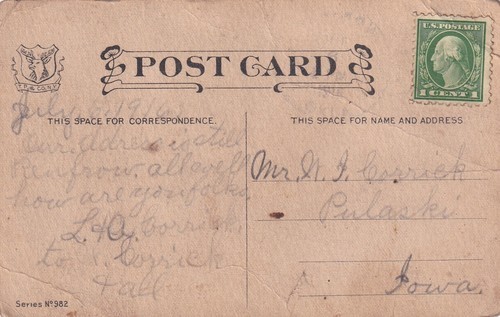 POST CARD
U.S. POSTAGE
1 CENT 1
THIS SPACE FOR CORRESPONDENCE.
THIS SPACE FOR NAME AND ADDRESS.
July
our adress is still
Renfrow. all well
how are you folks
L A Corrick
to Corrick
& all
Mr. W. J. Corrick
Pulaski
Iowa.
Series Nº 982